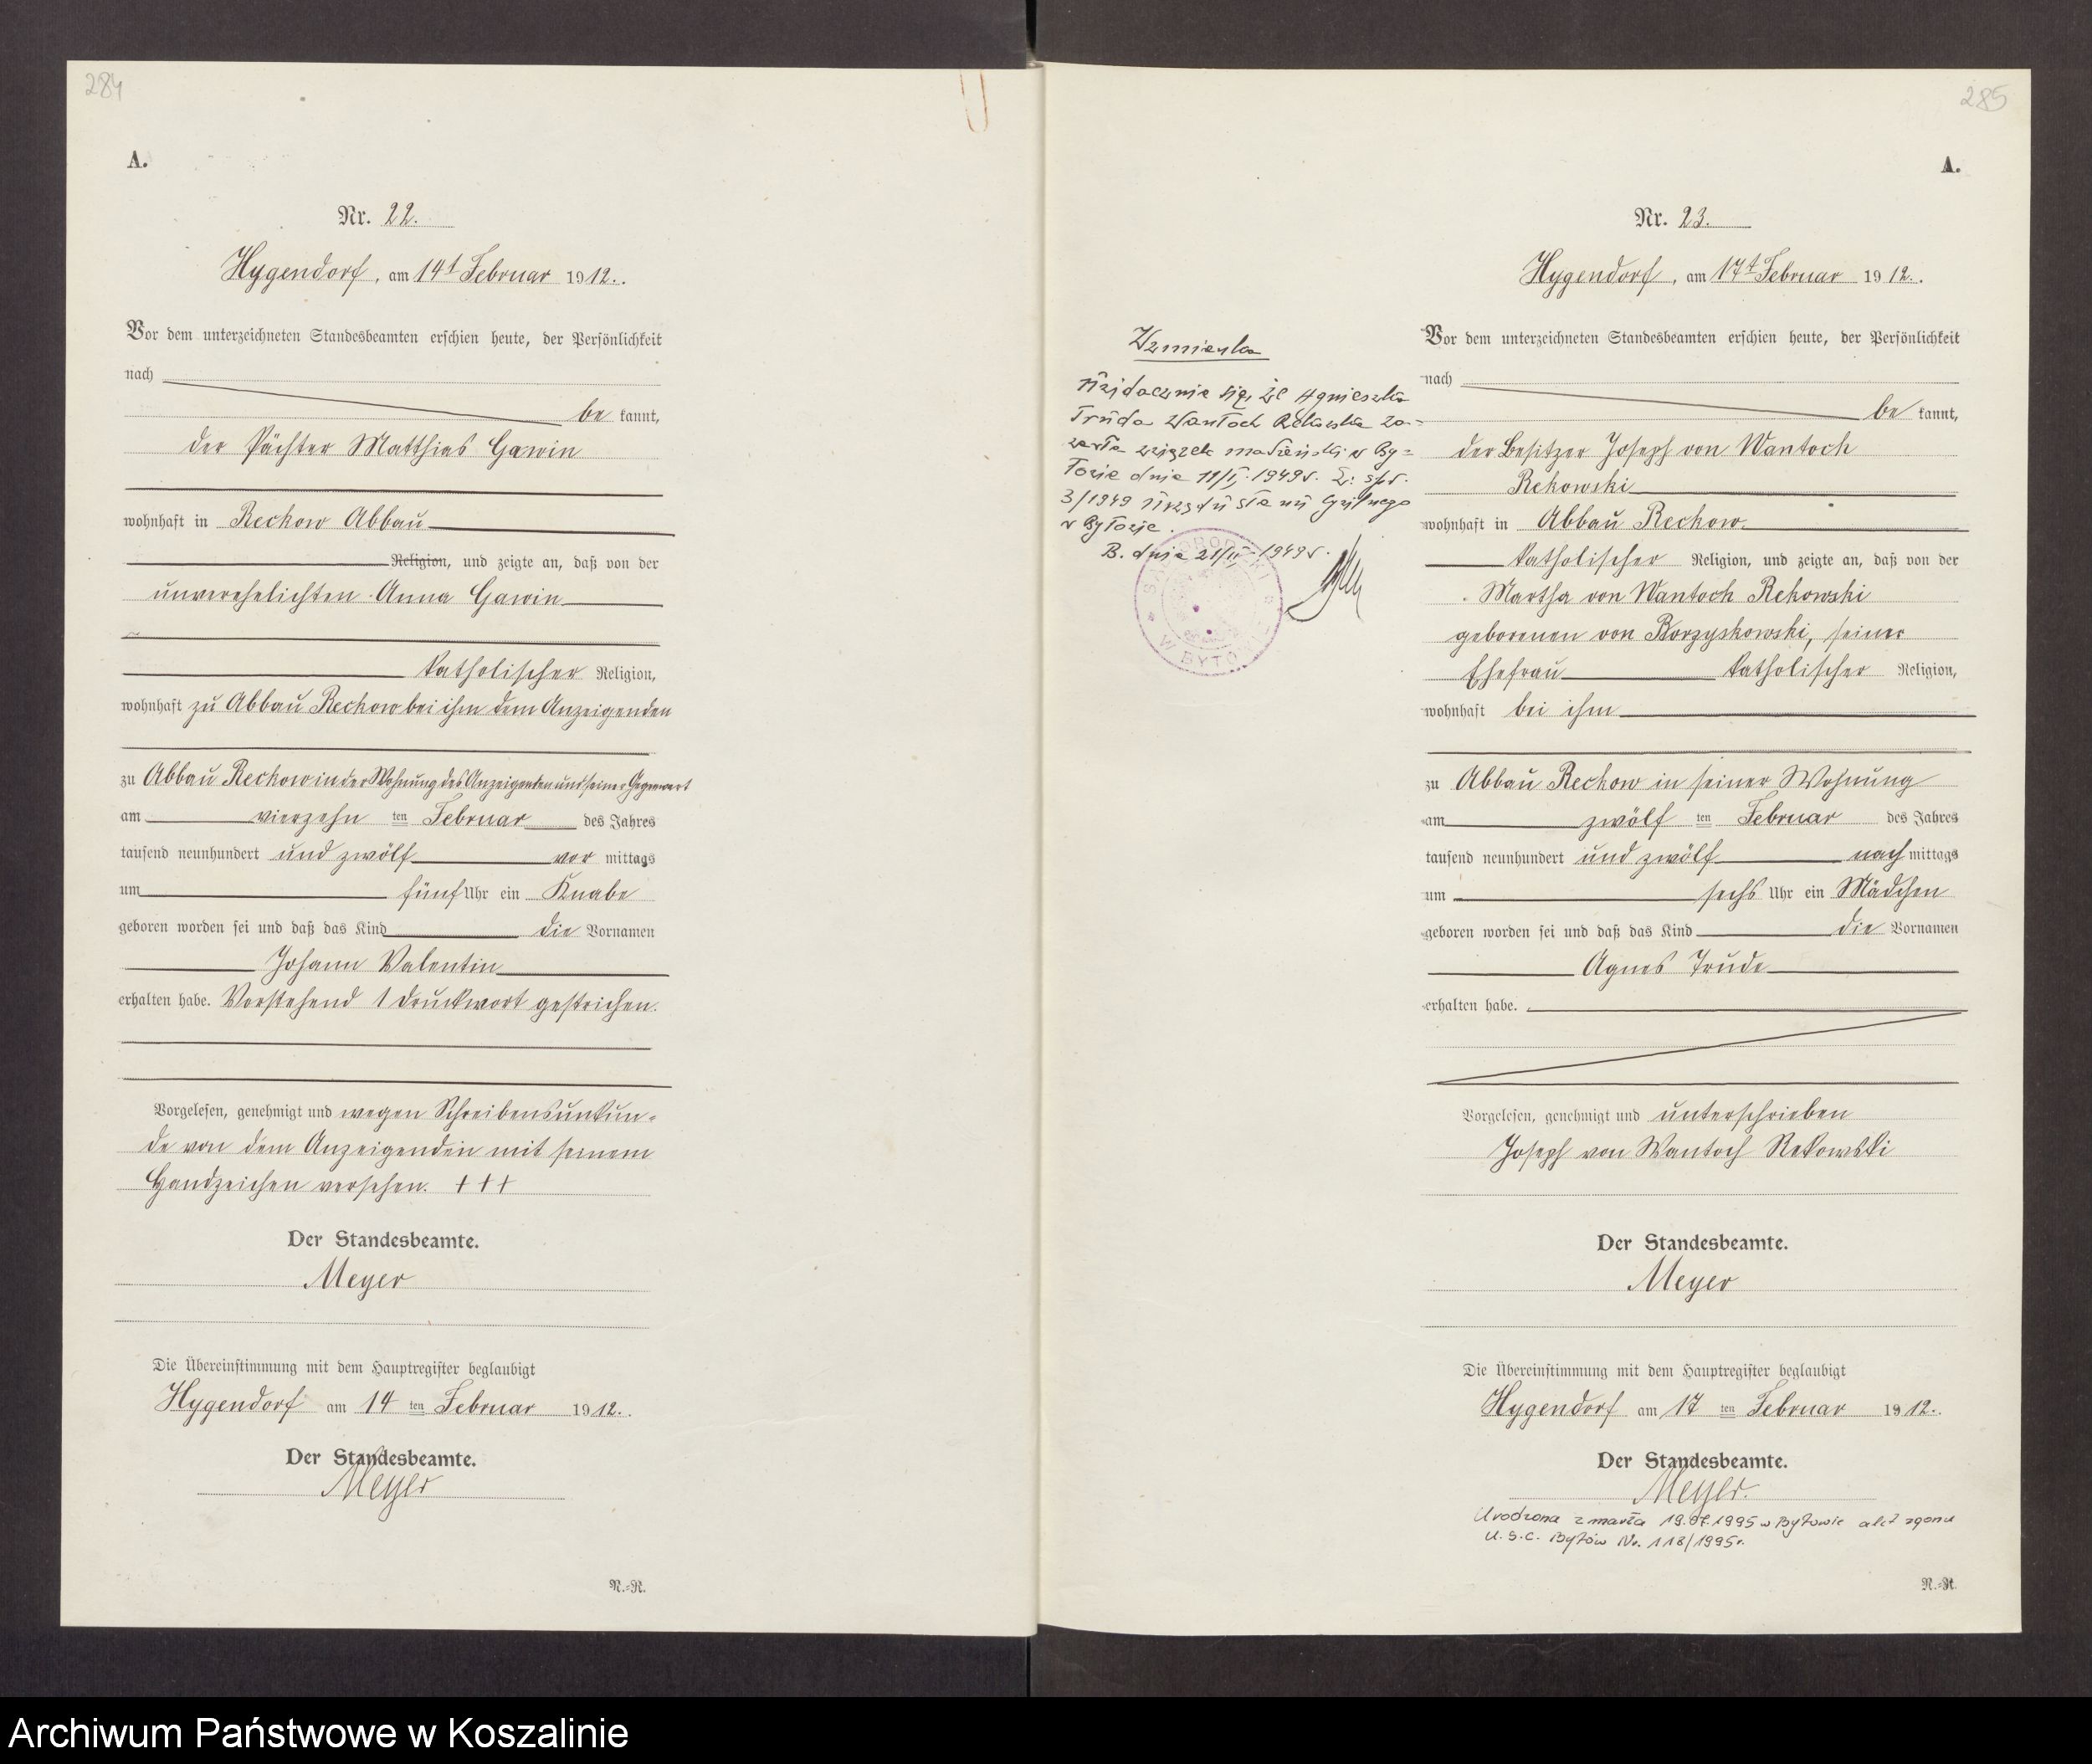 284
A.
Nr. 22.
Hygendorf, am 14t Februar 1912.
Vor dem unterzeichneten Standesbeamten erschien heute, der Persönlichkeit
nach
be kannt,
der Pächter Matthias Gawin
wohnhaft in Reckow Abbau
Religion, und zeigte an, daß von der
unverehelichten Anna Gawin
katholischer Religion,
wohnhaft zu Abbau Reckow bei ihm dem Anzeigenden
zu Abbau Reckow in der Wohnung des Anzeigenden und seiner Gegenwart
am vierzehn ten Februar des Jahres
tausend neunhundert und zwölf vor mittags
um fünf Uhr ein Knabe
geboren worden sei und daß das Kind die Vornamen
Johann Valentin
erhalten habe. Vorstehend 1 Druckwort gestrichen.
Vorgelesen, genehmigt und wegen Schreibensunkun-
de von dem Anzeigenden mit seinem
Handzeichen versehen. +++
Der Standesbeamte.
Meyer
Die Übereinstimmung mit dem Hauptregister beglaubigt
Hygendorf am 14 ten Februar 1912.
Der Standesbeamte.
Meyer
N.=R.
285
A.
Nr. 23.
Hygendorf, am 17t Februar 1912.
Vor dem unterzeichneten Standesbeamten erschien heute, der Persönlichkeit
nach
be kannt,
der Besitzer Joseph von Wantoch
Rekowski
wohnhaft in Abbau Reckow
katholischer Religion, und zeigte an, daß von der
Martha von Wantoch Rekowski
geborenen von Borzyskowski, seiner
Ehefrau katholischer Religion,
wohnhaft bei ihm
zu Abbau Reckow in seiner Wohnung
am zwölf ten Februar des Jahres
tausend neunhundert und zwölf nach mittags
um sechs Uhr ein Mädchen
geboren worden sei und daß das Kind die Vornamen
Agnes Trude
erhalten habe.
Vorgelesen, genehmigt und unterschrieben
Joseph von Wantoch Rekowski
Der Standesbeamte.
Meyer
Die Übereinstimmung mit dem Hauptregister beglaubigt
Hygendorf am 17 ten Februar 1912.
Der Standesbeamte.
Meyer.
Urodzona zmarła 19.07.1995 w Bytowie akt zgonu
U.S.C. Bytów Nr. 118/1995r.
N.=R.
Wzmianka
Uwidacznia się, że Agnieszka
Truda Wantoch Rekowska za-
warła związek małżeński w By-
towie dnia 11/II. 1949r. L: spr.
3/1949 Urzędu Stanu Cywilnego
w Bytowie.
B. dnia 21/II. 1949r.
W BYTOWIE
Archiwum Państwowe w Koszalinie